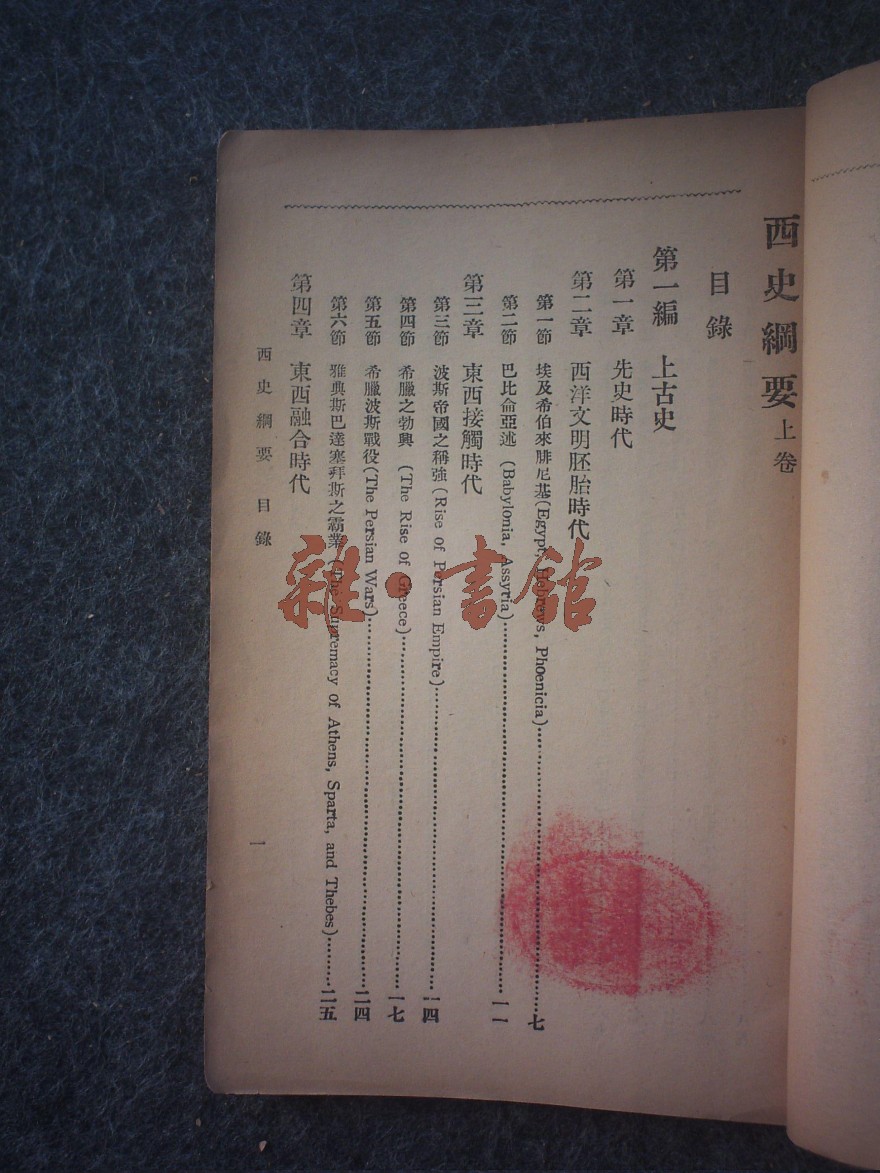 西史綱要上卷
目錄
第一編　上古史
第一章　先史時代
第二章　西洋文明胚胎時代
第一節　埃及希伯來腓尼基(Egypt, Hebrews, Phoenicia)……七
第二節　巴比侖亞述 (Babylonia, Assyria)……一一
第三章　東西接觸時代
第三節　波斯帝國之稱強(Rise of Persian Empire)……一四
第四節　希臘之勃興 (The Rise of Greece)……一七
第五節　希臘波斯戰役(The Persian Wars)……二四
第六節　雅典斯巴達塞拜斯之霸業 (The Supremacy of Athens, Sparta, and Thebes)……二五
第四章　東西融合時代
西史綱要　目錄
一
雜·書館